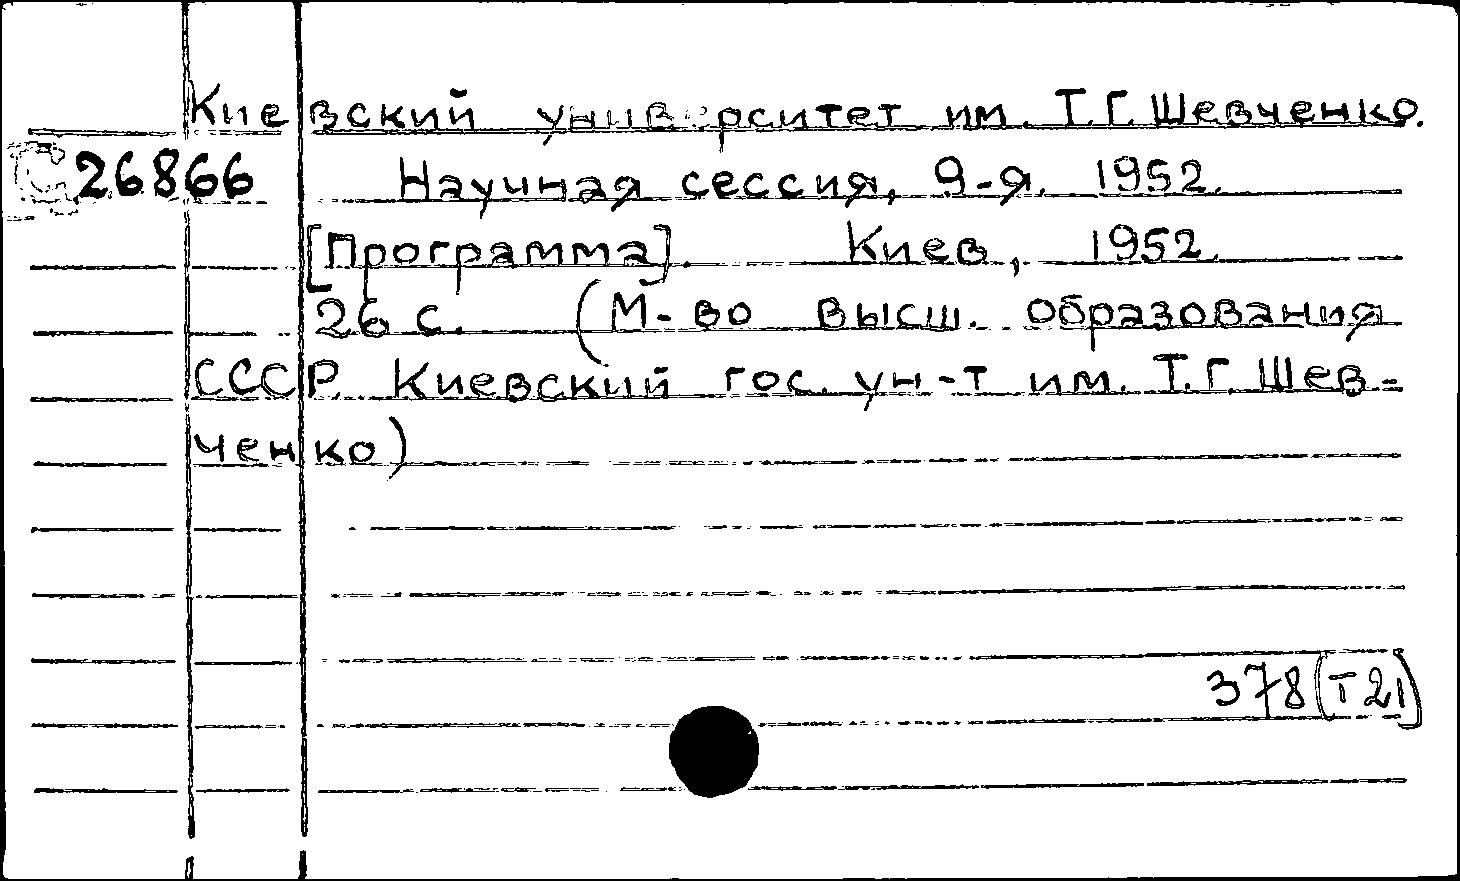 Киевский университет им. Т.Г. Шевченко.
С 26866
Научная сессия, 9-я. 1952.
[Программа]. Киев, 1952.
26 с. (М-во высш. образования
СССР. Киевский гос. ун-т им. Т.Г. Шев-
ченко)
378(Т21)